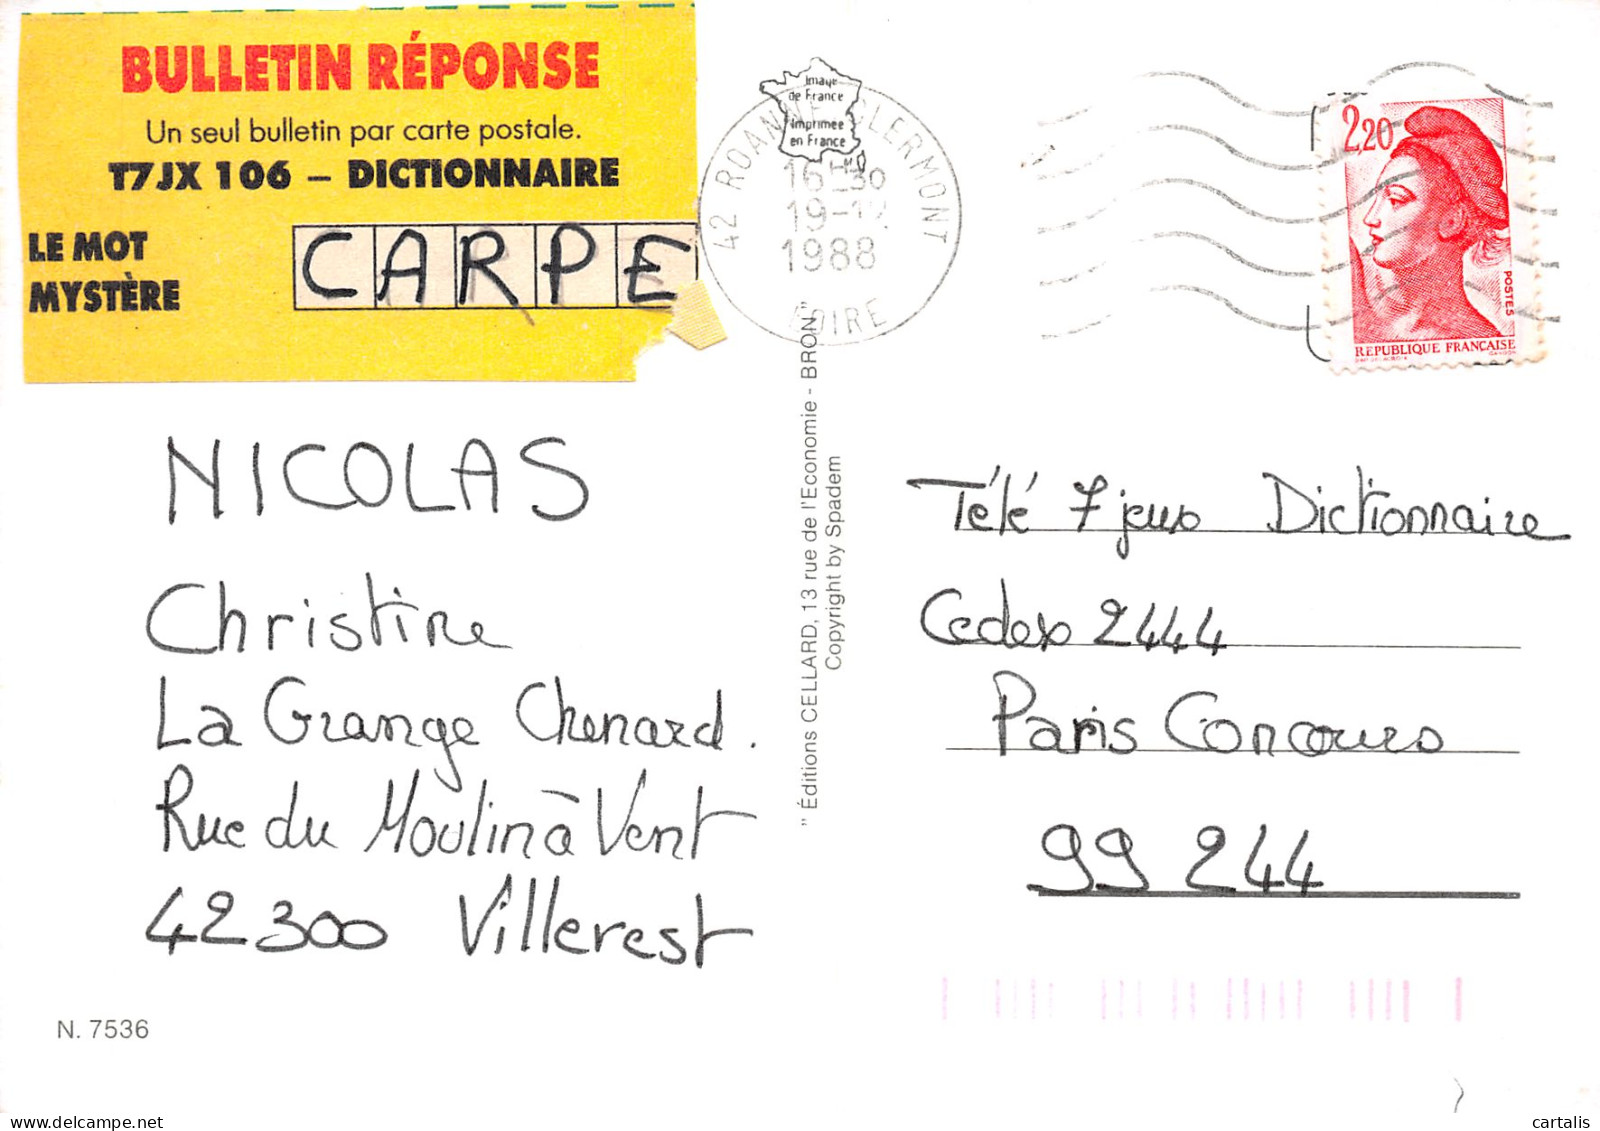 BULLETIN RÉPONSE
Un seul bulletin par carte postale.
T7JX 106 – DICTIONNAIRE
LE MOT
MYSTÈRE
CARPE
Image
de France
Imprimée
en France
42 ROANNE CLERMONT
16H30
19-12
1988
LOIRE
2,20
POSTES
REPUBLIQUE FRANÇAISE
GANDON
NICOLAS
Christine
La Grange Chenard.
Rue du Moulin à Vent
42300 Villerest
N. 7536
" Éditions CELLARD, 13 rue de l'Economie - BRON "
Copyright by Spadem
Télé 7 jeux Dictionnaire
Cedex 2444
Paris Concours
99 244
cartalis